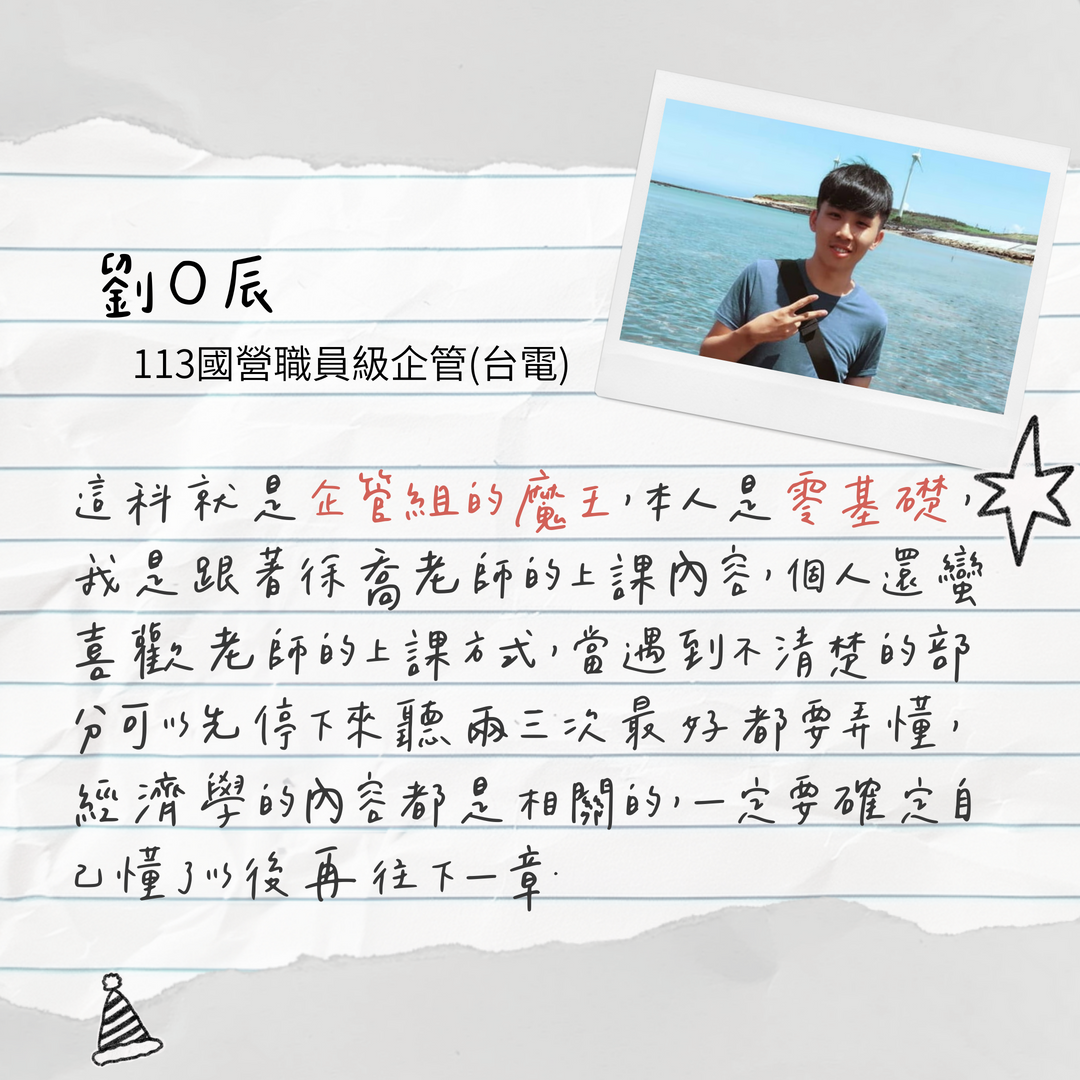 劉O辰
113國營職員級企管(台電)
這科就是企管組的魔王,本人是零基礎,
我是跟著徐喬老師的上課內容,個人還蠻
喜歡老師的上課方式,當遇到不清楚的部
分可以先停下來聽兩三次最好都要弄懂,
經濟學的內容都是相關的,一定要確定自
己懂了以後再往下一章.